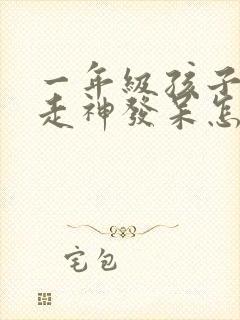 一年級孩子
走神發呆怎
宅包